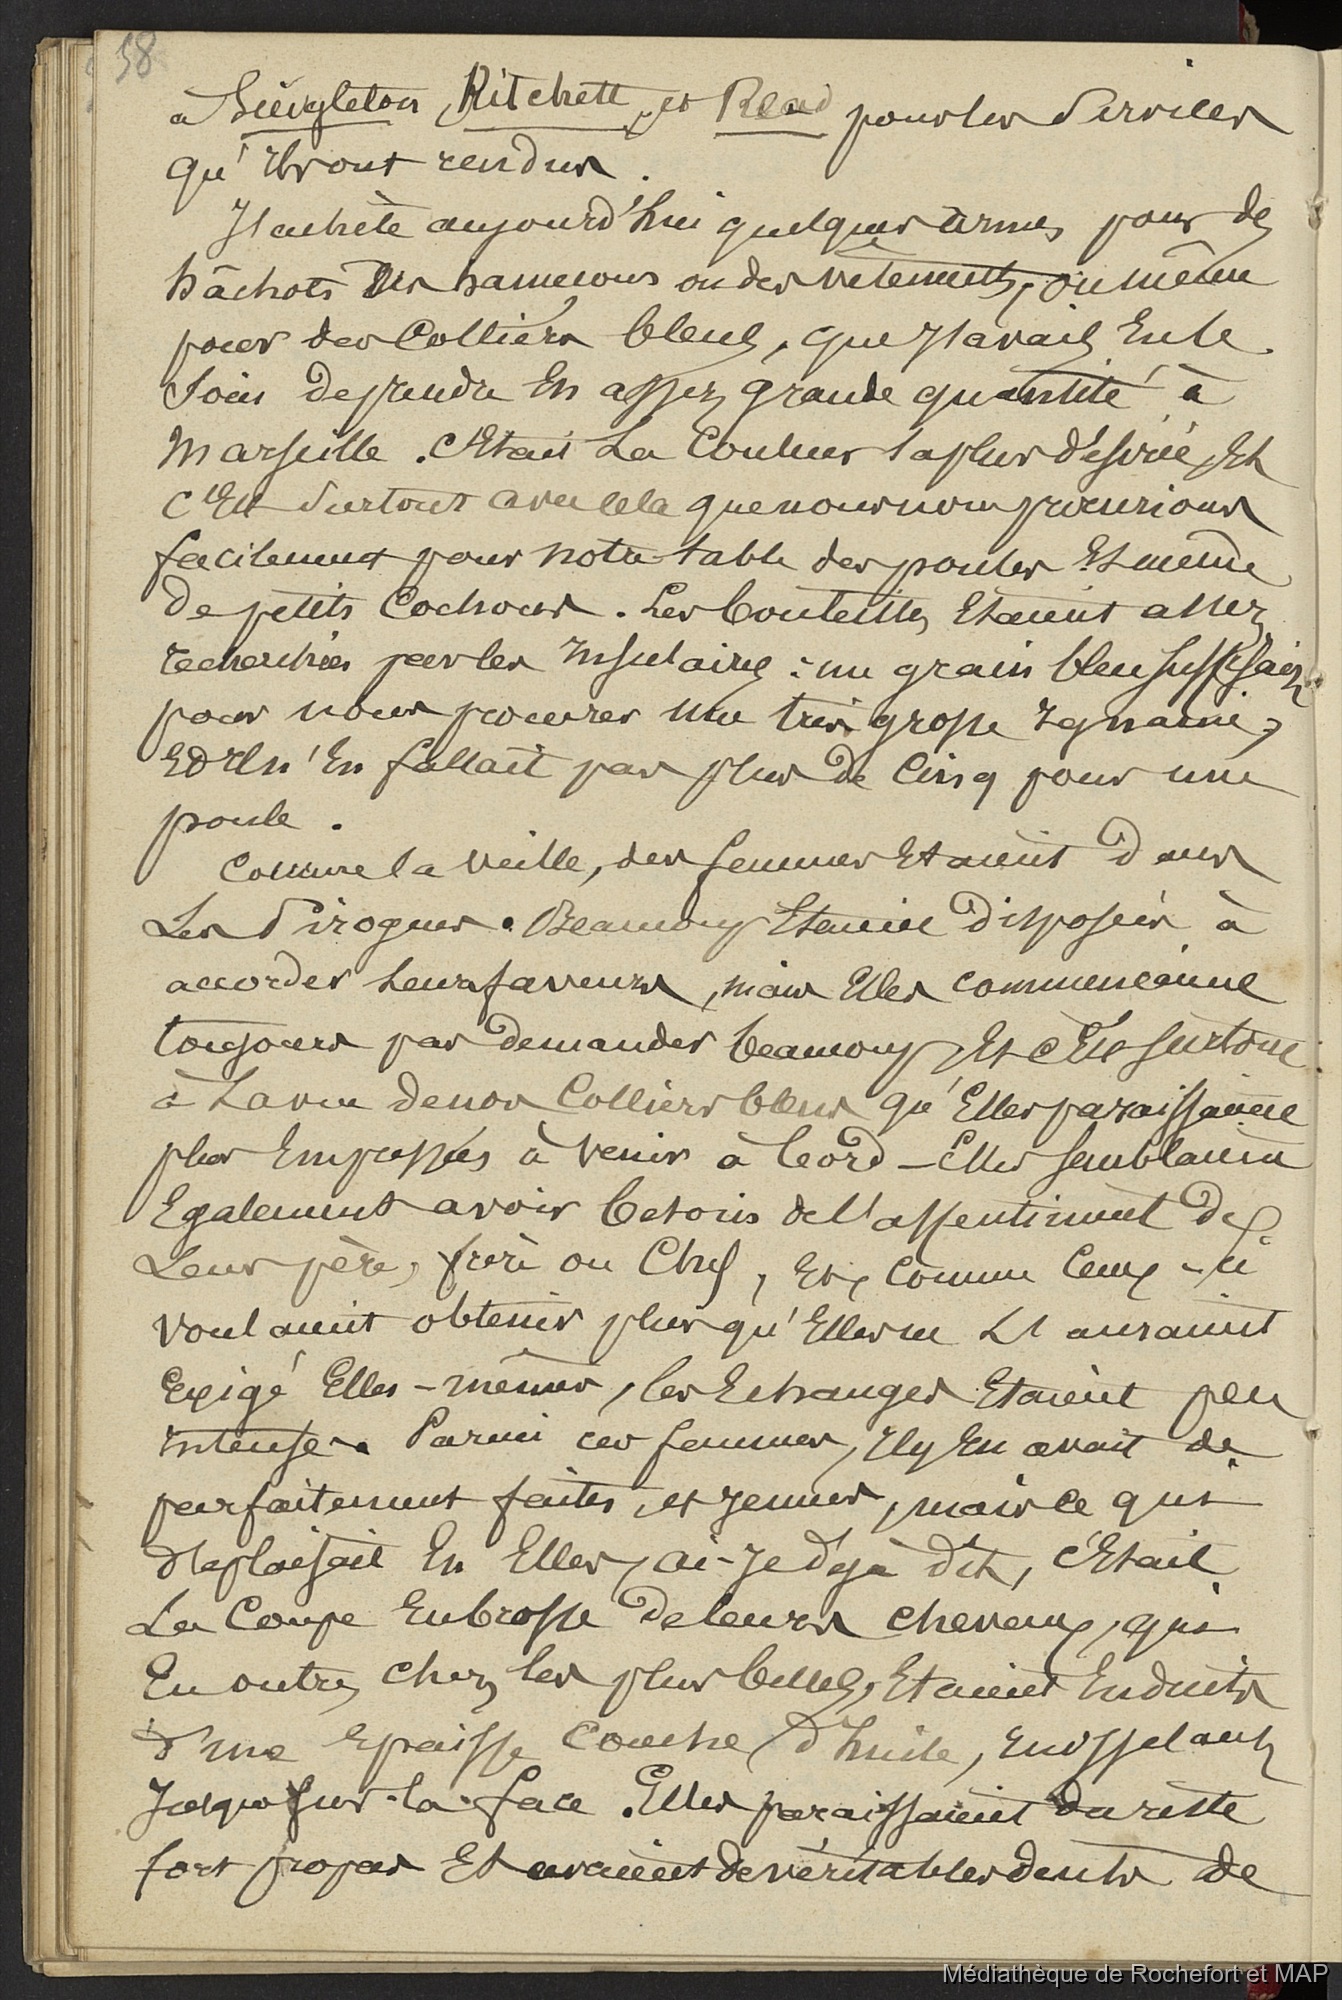 58
à Singleton, Ritchett, et Read pour les services
qu'ils ont rendus.
J'achète aujourd'hui quelques armes pour des
hâchots des hameçons ou des vêtements, ou même
pour des Colliers bleus, que j'avais Eu le
soin de prendre En assez grande quantité à
Marseille. C'Etait La Couleur la plus désirée, Et
c'Est surtout avec cela que nous nous procurions
facilement pour notre table des poules Et même
de petits Cochons. Les bouteilles Etaient assez
recherchées par les Insulaires : un grain bleu suffisait
pour nous procurer une très grosse Igname,
Et Il n'En fallait pas plus de Cinq pour une
poule.
Comme la veille, des femmes Etaient dans
Les Pirogues. Beaucoup Etaient disposées à
accorder Leurs faveurs, mais Elles commençaient
toujours par demander beaucoup, Et c'Est surtout
à La vue de nos Colliers bleus qu'Elles paraissaient
plus Empressées à venir à bord - Elles semblaient
Egalement avoir besoin de l'assentiment de
Leur père, frère ou Chef, Et, Comme Ceux-ci
voulaient obtenir plus qu'Elles ne L'auraient
Exigé Elles-mêmes, les Echanges Etaient peu
intenses. Parmi ces femmes, Il y En avait de
parfaitement faites, et jeunes, mais ce qui
déplaisait En Elles, ai-je déjà dit, c'Etait
La Coupe En brosse de leurs cheveux, qui
En outre, chez les plus belles, Etaient Enduits
d'une Epaisse Couche d'huile, ruisselant
jusque sur la face. Elles paraissaient du reste
fort propres Et avaient de véritables dents de
Médiathèque de Rochefort et MAP